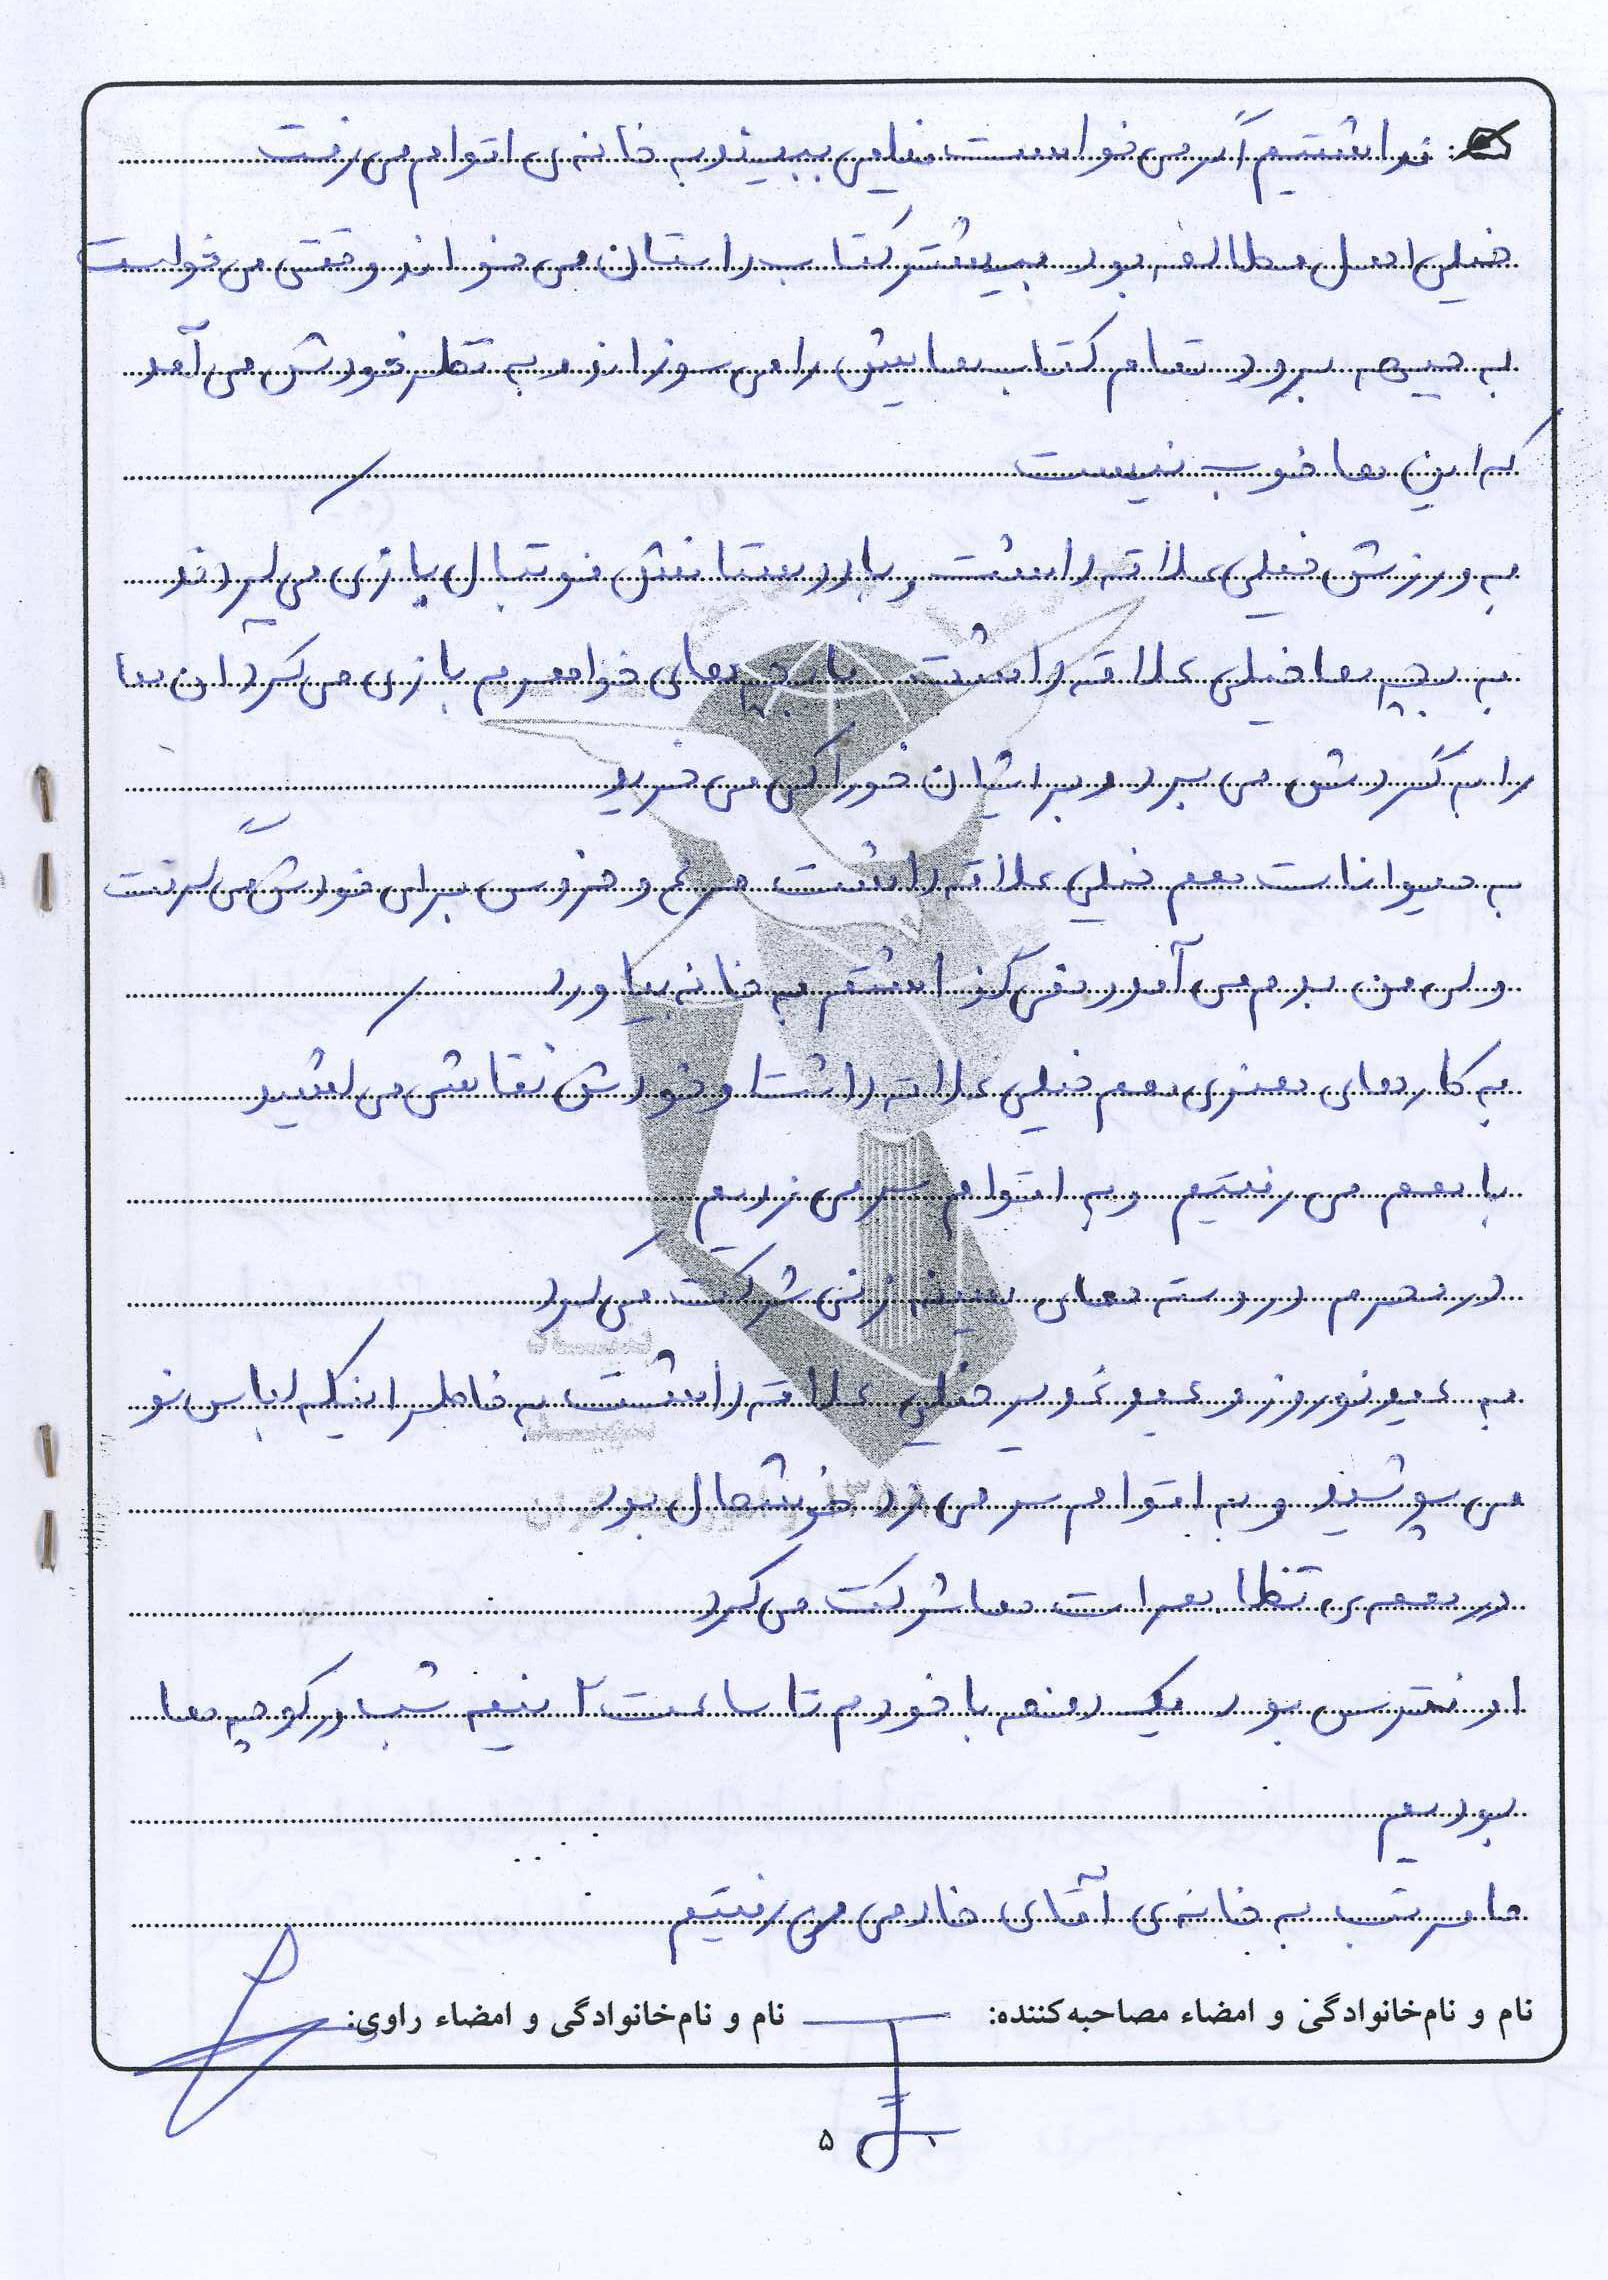 نداشتیم اگر می خواست فیلمی ببیند به خانه ی اقوام می رفت
خیلی اهل مطالعه بود بیشتر کتاب داستان می خواند وقتی می خواست
به جبهه برود تمام کتاب هایش را می سوزاند و به نظر خودش می آمد
که این ها خوب نیست
به ورزش خیلی علاقه داشت و با دوستانش فوتبال بازی می کردند
به بچه ها خیلی علاقه داشت با بچه های خواهرم بازی می کرد آن ها
را به گردش می برد و برایشان خوراکی می خرید
به حیوانات هم خیلی علاقه داشت مرغ و خروس برای خودش می گرفت
ولی من بدم می آمد و نمی گذاشتم به خانه بیاورد
به کارهای هنری هم خیلی علاقه داشت و خودش نقاشی می کشید
با هم می رفتیم و به اقوام سر می زدیم
در محرم در دسته های سینه زنی شرکت می کرد
به عید نوروز و عید غدیر خیلی علاقه داشت به خاطر اینکه لباس نو
می پوشید و به اقوام سر می زد خوشحال بود
در همه ی تظاهرات ها شرکت می کرد
او نترس بود یک دفعه با خودم تا ساعت ۲ نیمه شب در کوچه ها
بودیم
ما مرتب به خانه ی آقای خادمی می رفتیم
نام و نام‌خانوادگی و امضاء مصاحبه‌کننده: نام و نام‌خانوادگی و امضاء راوی:
۵